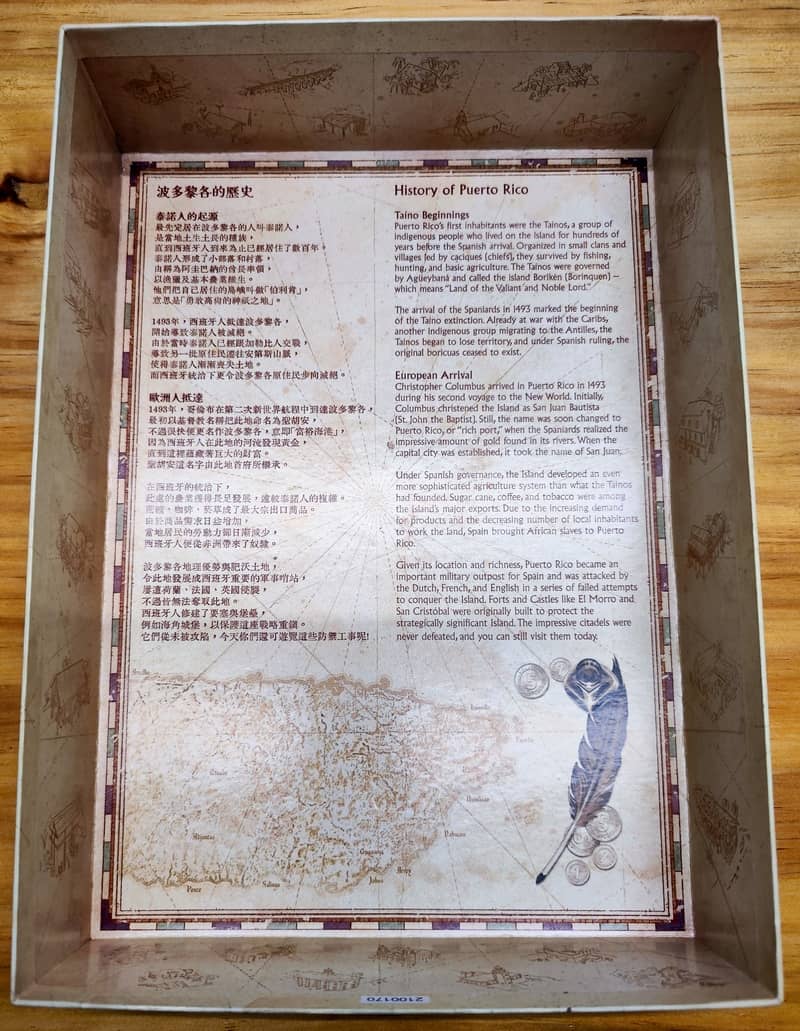 波多黎各的歷史
泰諾人的起源
最先定居在波多黎各的人叫泰諾人,
是當地土生土長的種族,
直到西班牙人到來為止已經居住了數百年。
泰諾人形成了小部落和村落,
由稱為阿圭巴納的酋長率領,
以漁獵及基本農業維生。
他們把自己居住的島嶼叫做「伯利肯」,
意思是「勇敢高尚的神祇之地」。
1493年,西班牙人抵達波多黎各,
開始導致泰諾人被滅絕。
由於當時泰諾人已經跟加勒比人交戰,
導致另一批原住民遷往安第斯山脈,
使得泰諾人漸漸喪失土地。
而西班牙統治下更令波多黎各原住民步向滅絕。
歐洲人抵達
1493年,哥倫布在第二次新世界航程中到達波多黎各,
最初以基督教名稱把此地命名為聖胡安,
不過很快便更名作波多黎各,意即「富裕海港」,
因為西班牙人在此地的河流發現黃金,
直到這裡蘊藏著巨大的財富。
聖胡安這名字由此地首府所繼承。
在西班牙的統治下,
此處的農業獲得長足發展,遠較泰諾人的複雜。
蔗糖、咖啡、菸草成了最大宗出口商品。
由於商品需求日益增加,
當地居民的勞動力節日漸減少,
西班牙人便從非洲帶來了奴隸。
波多黎各地理優勢與肥沃土地,
令此地發展成西班牙重要的軍事哨站,
屢遭荷蘭、法國、英國侵襲,
不過皆無法奪取此地。
西班牙人修建了要塞與堡壘,
例如海角城堡,以保護這座戰略重鎮。
它們從未被攻陷,今天你們還可遊覽這些防禦工事呢!
History of Puerto Rico
Taíno Beginnings
Puerto Rico's first inhabitants were the Taínos, a group of
indigenous people who lived on the Island for hundreds of
years before the Spanish arrival. Organized in small clans and
villages led by caciques (chiefs), they survived by fishing,
hunting, and basic agriculture. The Taínos were governed
by Agüeybaná and called the island Borikén (Borinquen) –
which means "Land of the Valiant and Noble Lord."
The arrival of the Spaniards in 1493 marked the beginning
of the Taíno extinction. Already at war with the Caribs,
another indigenous group migrating to the Antilles, the
Taínos began to lose territory, and under Spanish ruling, the
original boricuas ceased to exist.
European Arrival
Christopher Columbus arrived in Puerto Rico in 1493
during his second voyage to the New World. Initially,
Columbus christened the Island as San Juan Bautista
(St. John the Baptist). Still, the name was soon changed to
Puerto Rico, or "rich port," when the Spaniards realized the
impressive amount of gold found in its rivers. When the
capital city was established, it took the name of San Juan.
Under Spanish governance, the Island developed an even
more sophisticated agriculture system than what the Taínos
had founded. Sugar cane, coffee, and tobacco were among
the island's major exports. Due to the increasing demand
for products and the decreasing number of local inhabitants
to work the land, Spain brought African slaves to Puerto
Rico.
Given its location and richness, Puerto Rico became an
important military outpost for Spain and was attacked by
the Dutch, French, and English in a series of failed attempts
to conquer the Island. Forts and Castles like El Morro and
San Cristóbal were originally built to protect the
strategically significant Island. The impressive citadels were
never defeated, and you can still visit them today.
Ponce
Salinas
2100170